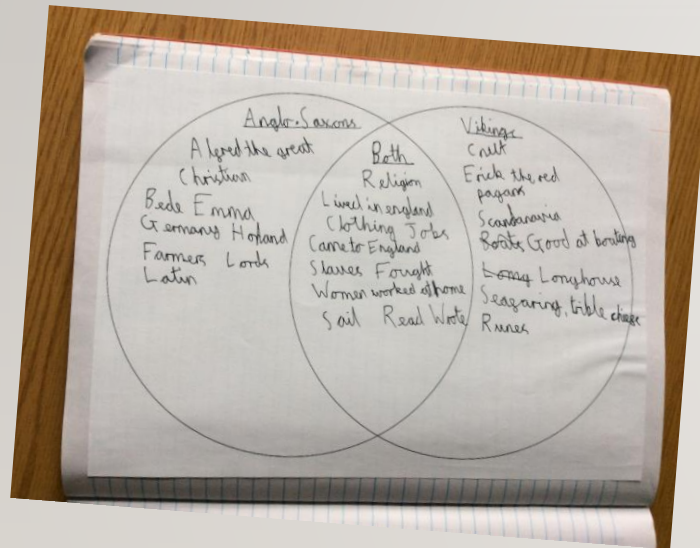 Anglo-Saxons
Alfred the great
Christian
Bede Emma
Germany Holland
Farmers Lords
Latin
Both
Religion
Lived in england
Clothing Jobs
Came to England
Slaves Fought
Women worked at home
Sail Read Wrote
Vikings
Cnut
Erick the red
pagans
Scandanavia
Boats Good at boating
Long Longhouse
Seagaring, trible chiefs
Runes